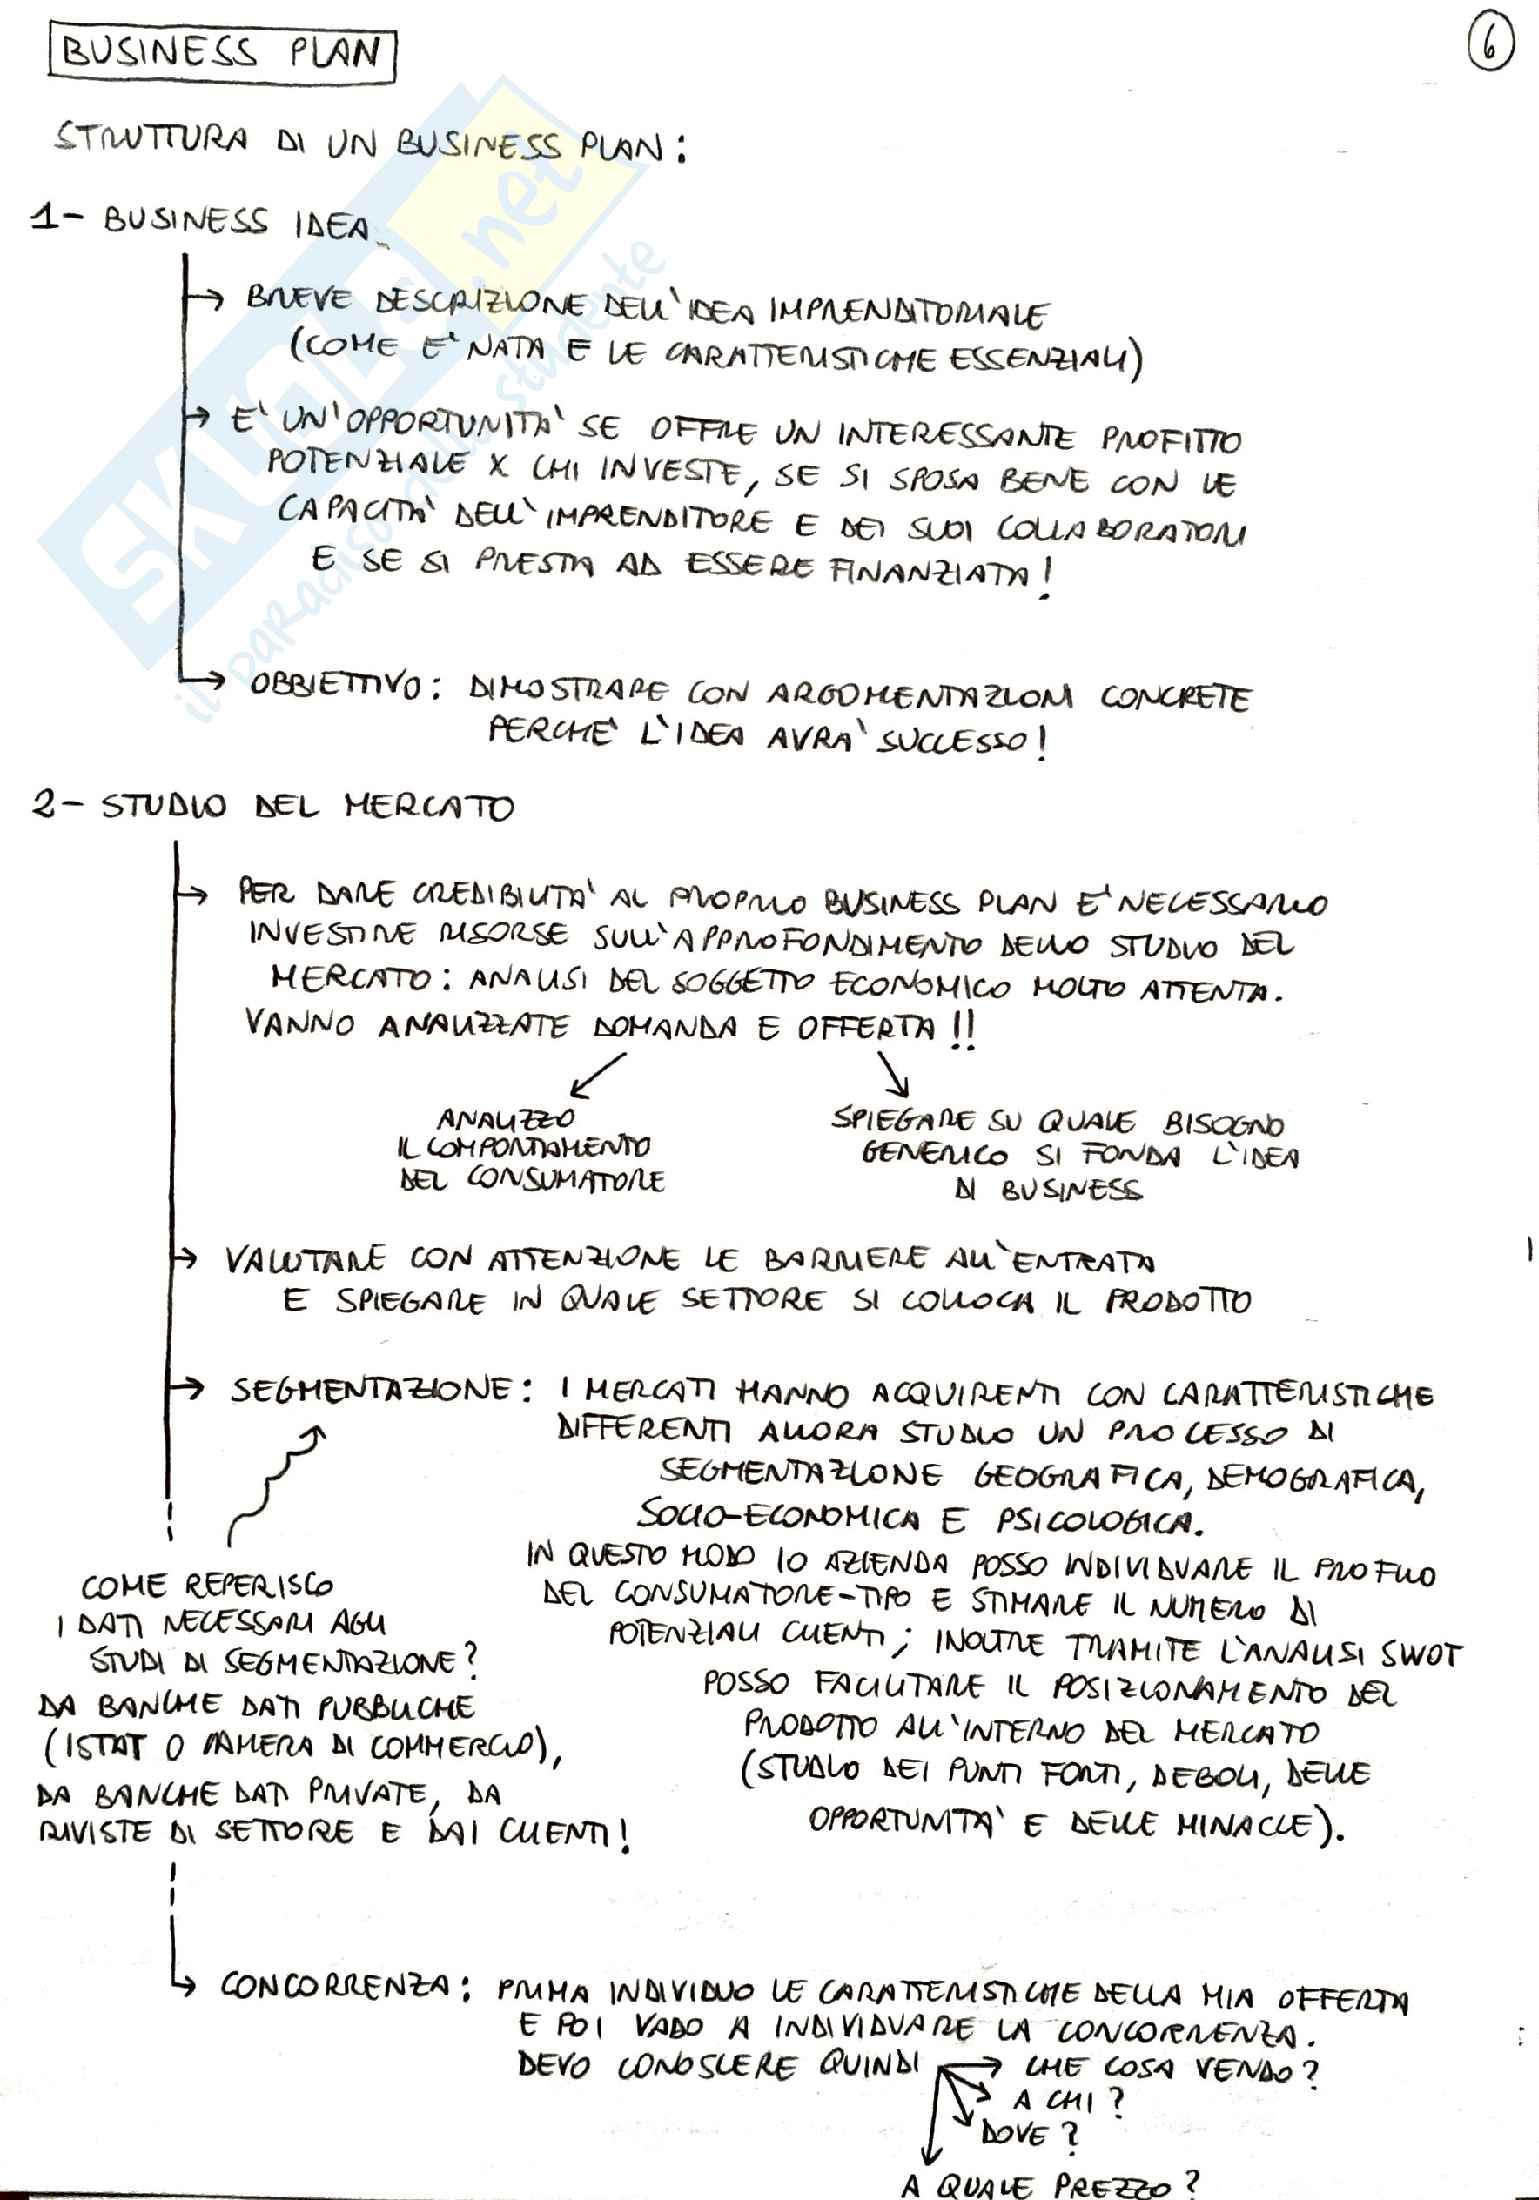 BUSINESS PLAN
6
STRUTTURA DI UN BUSINESS PLAN:
1- BUSINESS IDEA
→ BREVE DESCRIZIONE DELL'IDEA IMPRENDITORIALE
(COME E' NATA E LE CARATTERISTICHE ESSENZIALI)
→ E' UN'OPPORTUNITA' SE OFFRE UN INTERESSANTE PROFITTO
POTENZIALE X CHI INVESTE, SE SI SPOSA BENE CON LE
CAPACITA' DELL'IMPRENDITORE E DEI SUOI COLLABORATORI
E SE SI PRESTA AD ESSERE FINANZIATA!
→ OBBIETTIVO: DIMOSTRARE CON ARGOMENTAZIONI CONCRETE
PERCHE' L'IDEA AVRA' SUCCESSO!
2- STUDIO DEL MERCATO
→ PER DARE CREDIBILITA' AL PROPRIO BUSINESS PLAN E' NECESSARIO
INVESTIRE RISORSE SULL'APPROFONDIMENTO DELLO STUDIO DEL
MERCATO: ANALISI DEL SOGGETTO ECONOMICO MOLTO ATTENTA.
VANNO ANALIZZATE DOMANDA E OFFERTA!!
ANALIZZO
IL COMPORTAMENTO
DEL CONSUMATORE
SPIEGARE SU QUALE BISOGNO
GENERICO SI FONDA L'IDEA
DI BUSINESS
→ VALUTARE CON ATTENZIONE LE BARRIERE ALL'ENTRATA
E SPIEGARE IN QUALE SETTORE SI COLLOCA IL PRODOTTO
→ SEGMENTAZIONE: I MERCATI HANNO ACQUIRENTI CON CARATTERISTICHE
DIFFERENTI ALLORA STUDIO UN PROCESSO DI
SEGMENTAZIONE GEOGRAFICA, DEMOGRAFICA,
SOCIO-ECONOMICA E PSICOLOGICA.
IN QUESTO MODO IO AZIENDA POSSO INDIVIDUARE IL PROFILO
DEL CONSUMATORE-TIPO E STIMARE IL NUMERO DI
POTENZIALI CLIENTI; INOLTRE TRAMITE L'ANALISI SWOT
POSSO FACILITARE IL POSIZIONAMENTO DEL
PRODOTTO ALL'INTERNO DEL MERCATO
(STUDIO DEI PUNTI FORTI, DEBOLI, DELLE
OPPORTUNITA' E DELLE MINACCE).
COME REPERISCO
I DATI NECESSARI AGLI
STUDI DI SEGMENTAZIONE?
DA BANCHE DATI PUBBLICHE
(ISTAT O CAMERA DI COMMERCIO),
DA BANCHE DATI PRIVATE, DA
RIVISTE DI SETTORE E DAI CLIENTI!
→ CONCORRENZA: PRIMA INDIVIDUO LE CARATTERISTICHE DELLA MIA OFFERTA
E POI VADO A INDIVIDUARE LA CONCORRENZA.
DEVO CONOSCERE QUINDI → CHE COSA VENDO?
A CHI?
DOVE?
A QUALE PREZZO?
SKUOLA.net
il paradiso dello studente